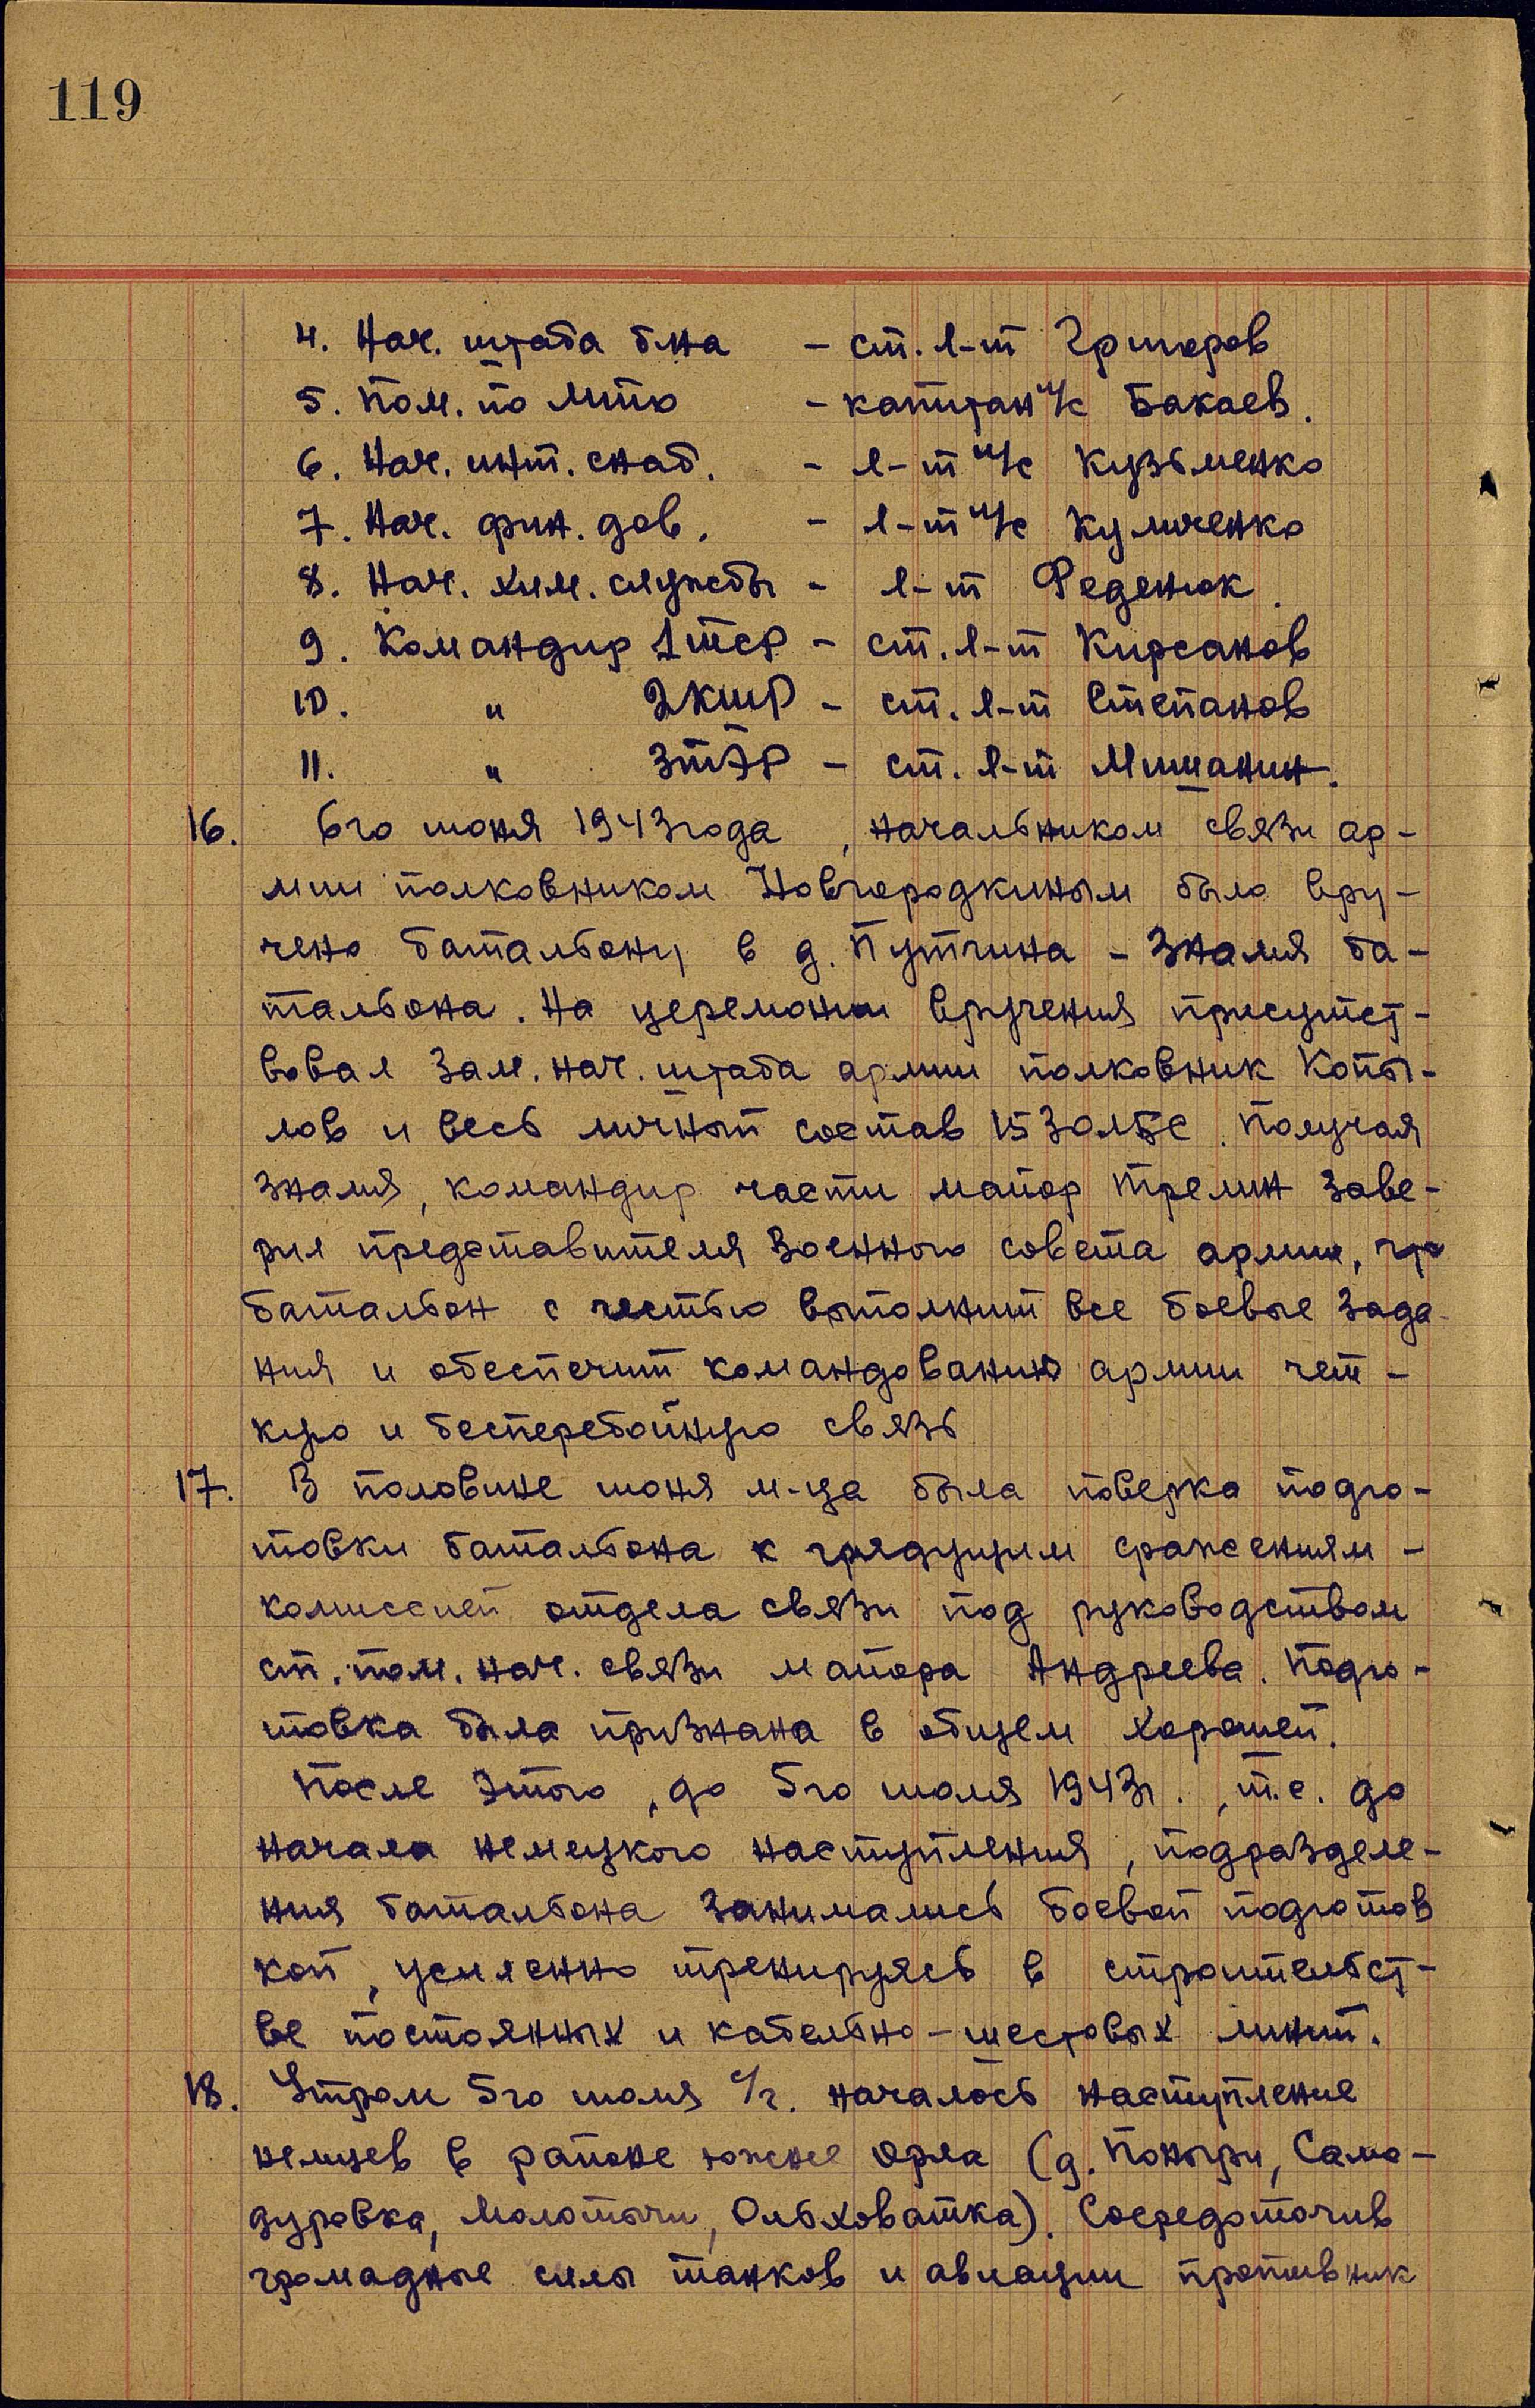 119
4. Нач. штаба б-на - ст. л-т Григоров
5. Пом. по МТО - капитан и/с Бакаев.
6. Нач. инт. снаб. - л-т и/с Кузьменко
7. Нач. фин. дов. - л-т и/с Куличенко
8. Нач. хим. службы - л-т Феденюк.
9. Командир 1ТСР - ст. л-т Кирсанов
10. " 2КШР - ст. л-т Степанов
11. " 3ТЭР - ст. л-т Мишанин.
16. 6го июня 1943года, начальником связи ар-
мии полковником Новгородкиным было вру-
чено батальону в д. Путчина - Знамя ба-
тальона. На церемонии вручения присутст-
вовал Зам. нач. штаба армии полковник Копы-
лов и весь личный состав 153 ОЛБС. Получая
знамя, командир части майор Трелин заве-
рил представителя Военного совета армии, что
батальон с честью выполнит все боевые зада-
ния и обеспечит командованию армии чет-
кую и бесперебойную связь
17. В половине июня м-ца была поверка подго-
товки батальона к грядущим сражениям -
комиссией отдела связи под руководством
ст. пом. нач. связи майора Андреева. Подго-
товка была признана в общем хорошей.
После этого, до 5го июля 1943г., т.е. до
начала немецкого наступления, подразделе-
ния батальона занимались боевой подготов
кой, усиленно тренируясь в строительст-
ве постоянных и кабельно-шестовых линий.
18. Утром 5го июля с/г. началось наступление
немцев в районе южнее Орла (д. Поныри, Само-
дуровка, Молотычи, Ольховатка). Сосредоточив
громадные силы танков и авиации противник